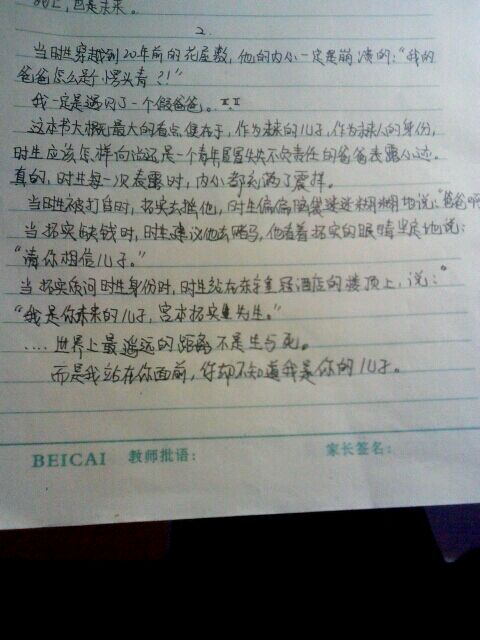 我上,也是未来。
2.
当时生穿越到20年前的花屋敷,他的内心一定是崩溃的:"我的
爸爸怎么是个愣头青?!"
我一定是遇到了一个假爸爸。
这本书大概最大的看点便在于,作为未来的儿子,作为未来人的身份,
时生应该怎样向还是一个青年屡屡失败不负责任的爸爸表露心迹。
真的,时生每一次表露时,内心都充满了震撼。
当时生被打自时,拓实去找他,时生偏偏脑袋迷迷糊糊地说:"爸爸啊
当拓实缺钱时,时生建议他去赌马,他看着拓实的眼睛坚定地说:
"请你相信儿子。"
当拓实质问时生身份时,时生站在东京皇冠酒店的楼顶上,说:"
"我是你未来的儿子,宫本拓实先生。"
....世界上最遥远的距离不是生与死。
而是我站在你面前,你却不知道我是你的儿子。
BEICAI 教师批语: 家长签名: